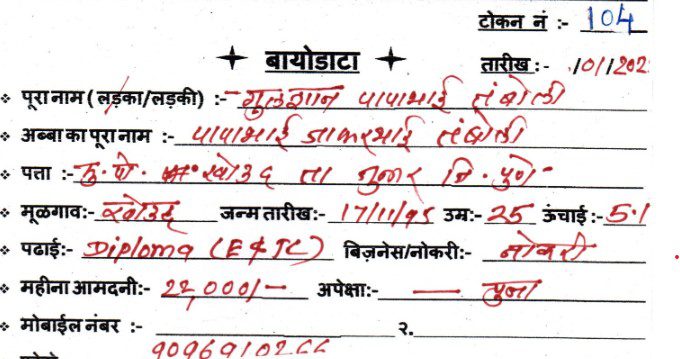 टोकन नं :- 104
बायोडाटा
तारीख :- /01/202
पूरा नाम (लड़का/लड़की) :- गुलशान पापाभाई तंबोली
अब्बा का पूरा नाम :- पापाभाई जाफरभाई तंबोली
पत्ता :- मु. पो. खोडद ता जुन्नर जि. पुणे
मूळगाव:- खोडद जन्म तारीख:- 17/11/95 उम्र:- 25 ऊंचाई :- 5.1
पढाई:- Diploma (E&TC) बिज़नेस/नोकरी:- नोकरी
महीना आमदनी:- 22,000/- अपेक्षा:-
मोबाईल नंबर :- २.